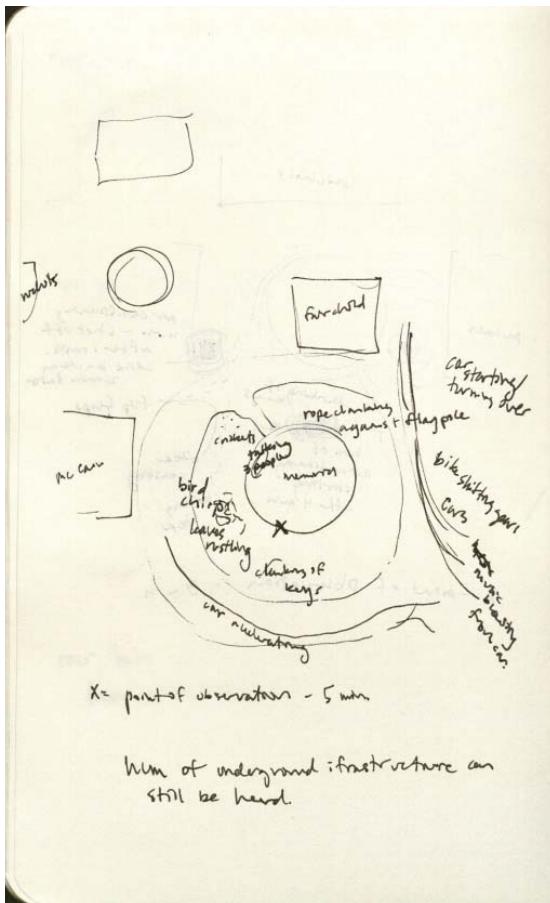 Fairchild
car
starting/
turning over
rope clanking
against flagpole
crickets
talking
3 people
memorial
McCaw
bird
chirps
leaves
rustling
bike shifting gears
cars
music
blowing
from car
clanking of
keys
car accelerating
X = point of observation - 5 min
Hum of underground ifrastructure can
still be heard.